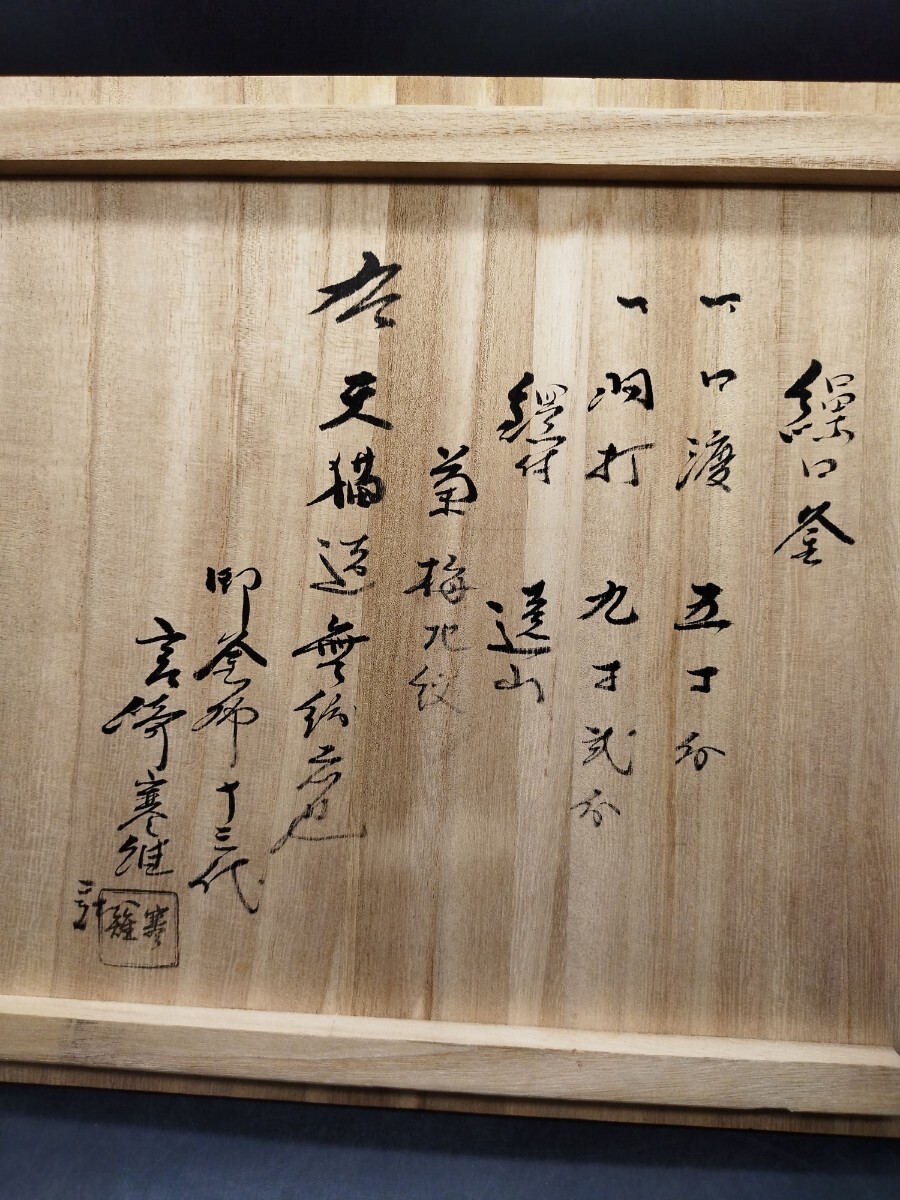 繰口釜
一 口渡 五寸分
一 羽打 九寸弐分
鐶付 遠山
菊梅地紋
右天猫造無紛者也
御釜師十三代
宮崎寒雉
誌
寒雉